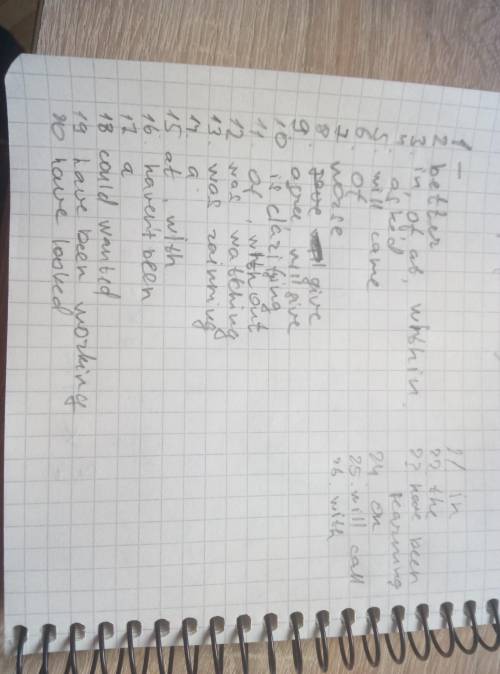 1 –
2 better
3. in, of at, within.
4. asked
5. will came
6. of
7. worse
8 give
9. agree, will give
10 is clarifing
11. of, without
12 was watching
13. was rainning
14. a
15 at, with
16. haven't been
17 a
18 could wanted
19 have been working
20 have looked
21 in
22 the
23 have been
learning
24 on
25. will call
26 with